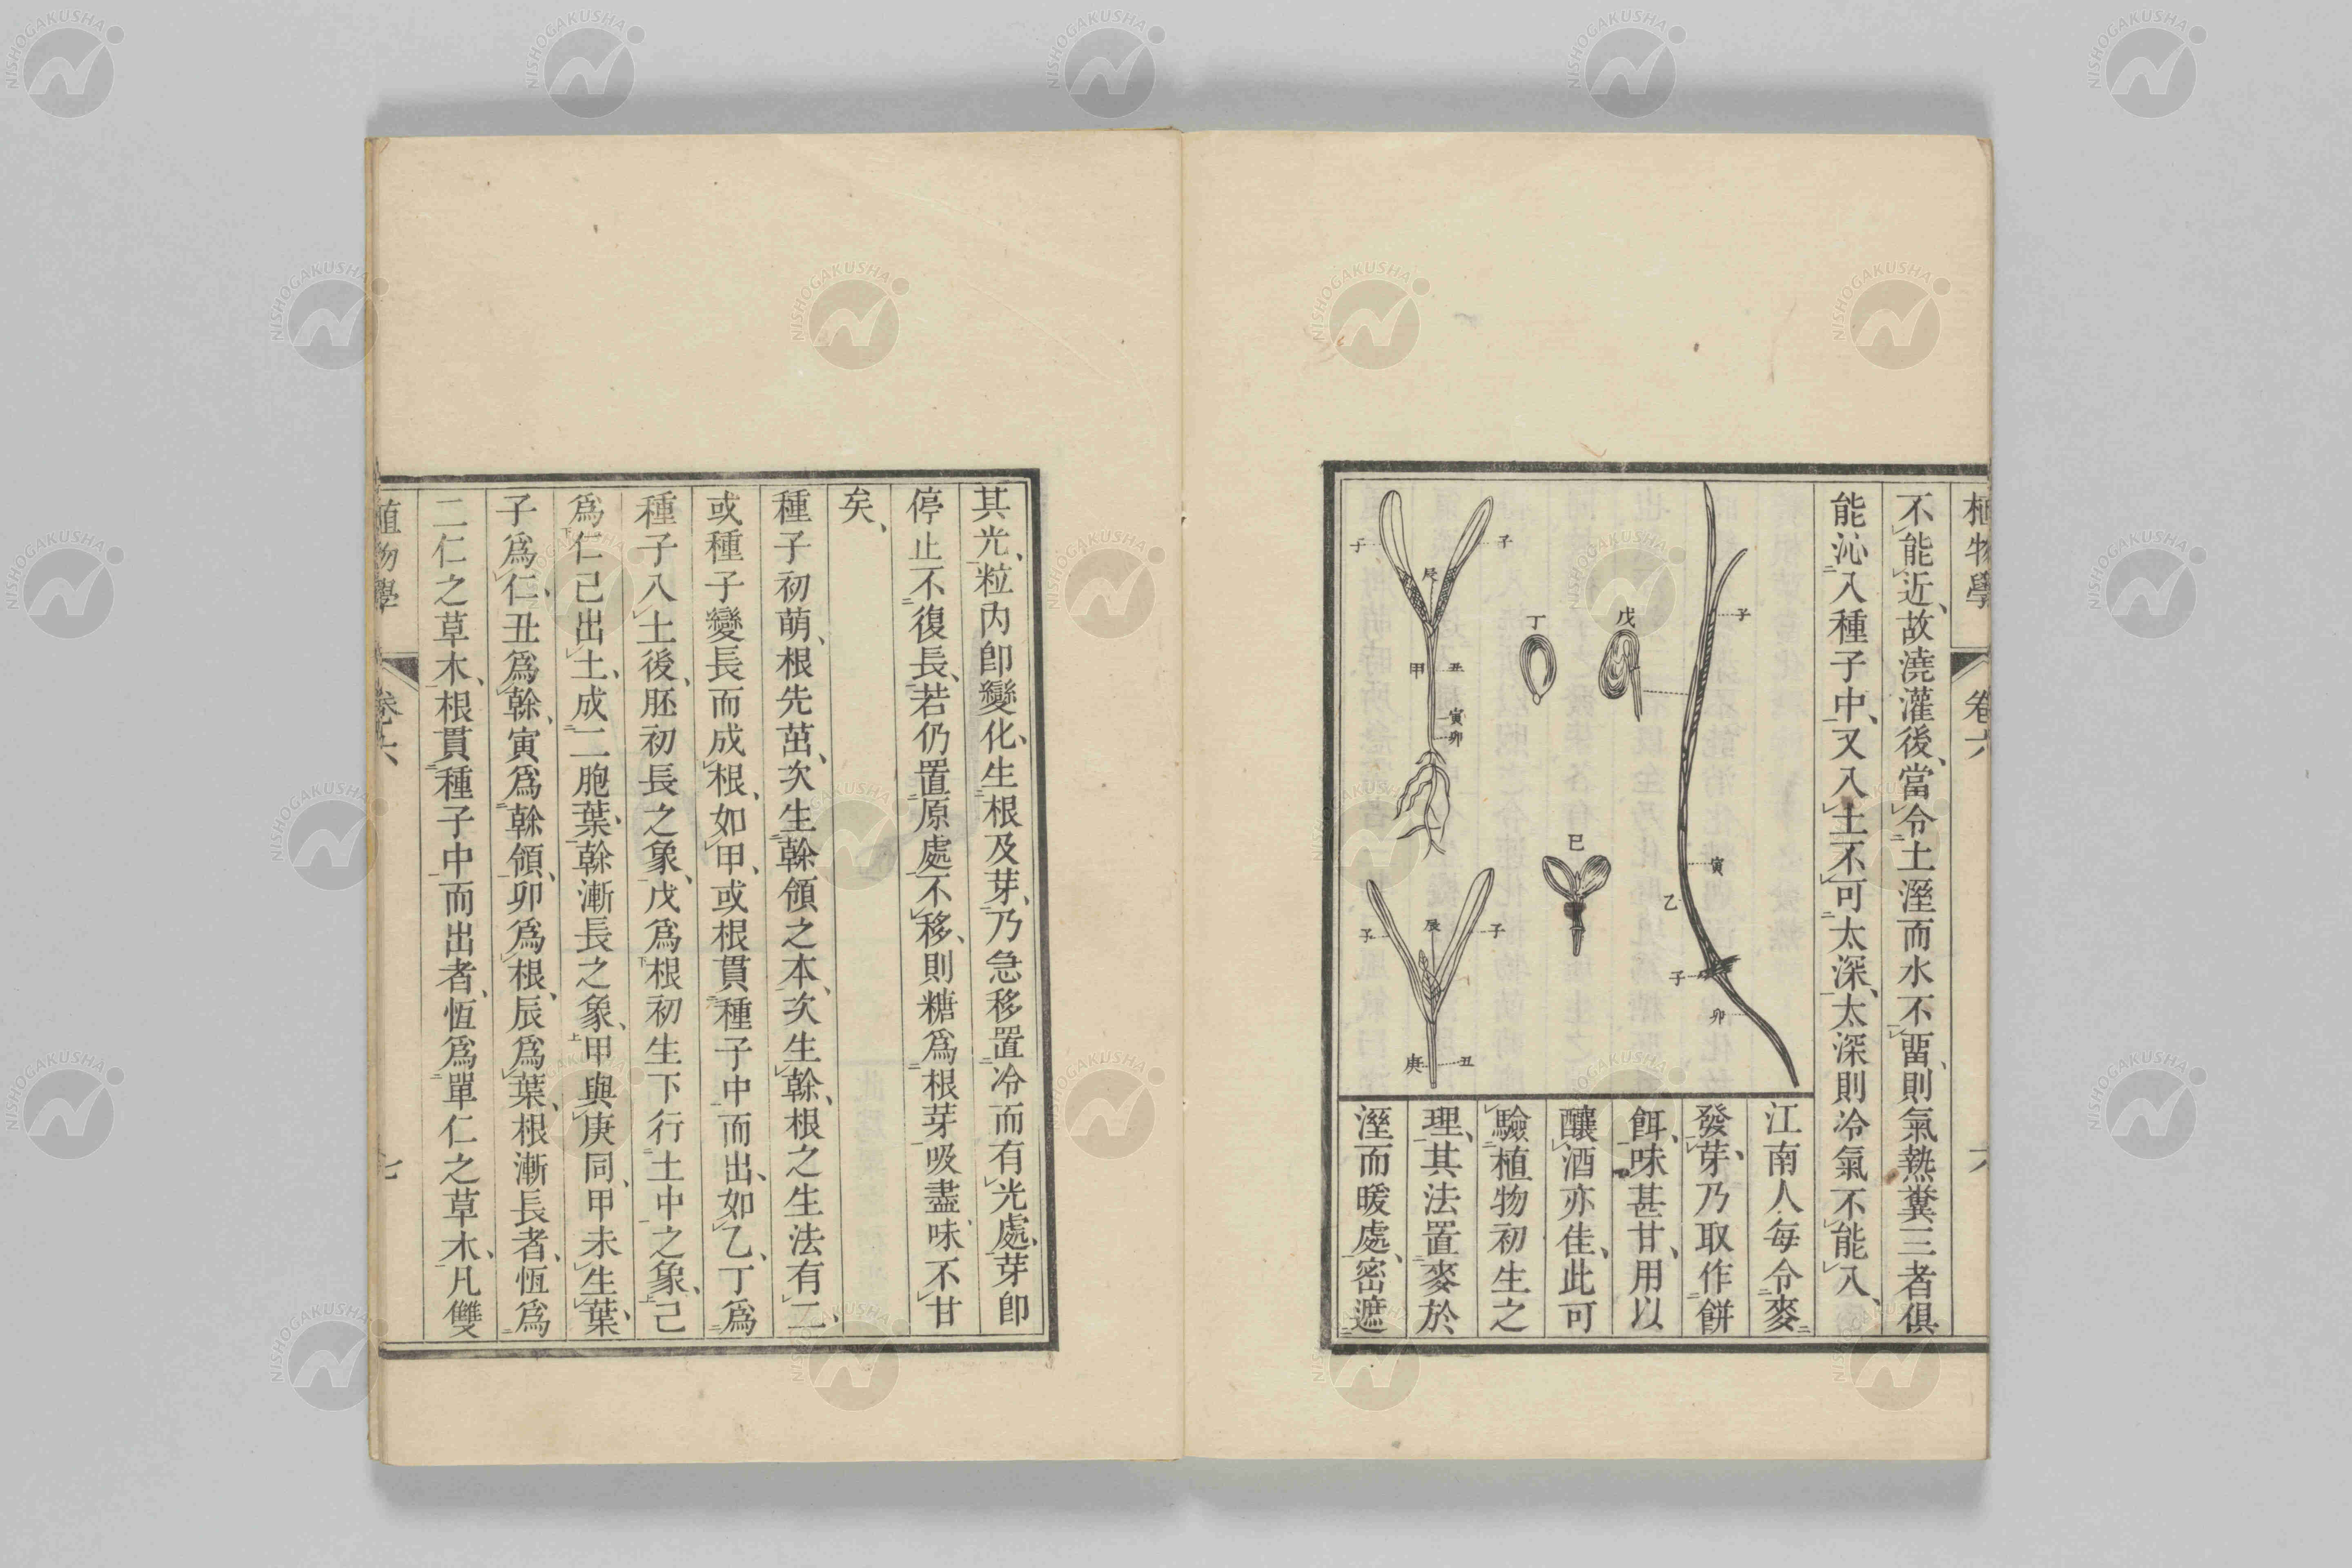 植物學
卷六
六
不能近、故澆灌後、當令土溼而水不畱、則氣熱糞三者俱
能沁入種子中、又入土不可太深、太深則冷氣不能入、
子
子
辰
甲
丑
寅
卯
丁
戊
子
寅
乙
子
卯
巳
子
子
辰
庚
丑
江南人每令麥
發芽、乃取作餅
餌、味甚甘、用以
釀酒亦佳、此可
驗植物初生之
理、其法置麥於
溼而暖處、密遮
其光、粒內卽變化、生根及芽、乃急移置冷而有光處、芽卽
停止不復長、若仍置原處不移、則糖爲根芽吸盡、味不甘
矣、
種子初萌、根先茁、次生榦領之本、次生榦、根之生法有二、
或種子變長而成根、如甲、或根貫種子中而出、如乙、丁爲
種子入土後、胚初長之象、戊爲根初生下行土中之象、己
爲仁已出土、成二胞葉、榦漸長之象、甲與庚同、甲未生葉、
子爲仁、丑爲榦、寅爲榦領、卯爲根、辰爲葉、根漸長者、恆爲
二仁之草木、根貫種子中而出者、恆爲單仁之草木、凡雙
植物學
卷六
七
NISHOGAKUSHA